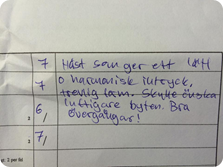 7 Häst som ger ett lätt
7 o harmonisk intryck,
trevlig lam. Skulle önska
6/ luftigare byten. Bra
övergångar!
7/